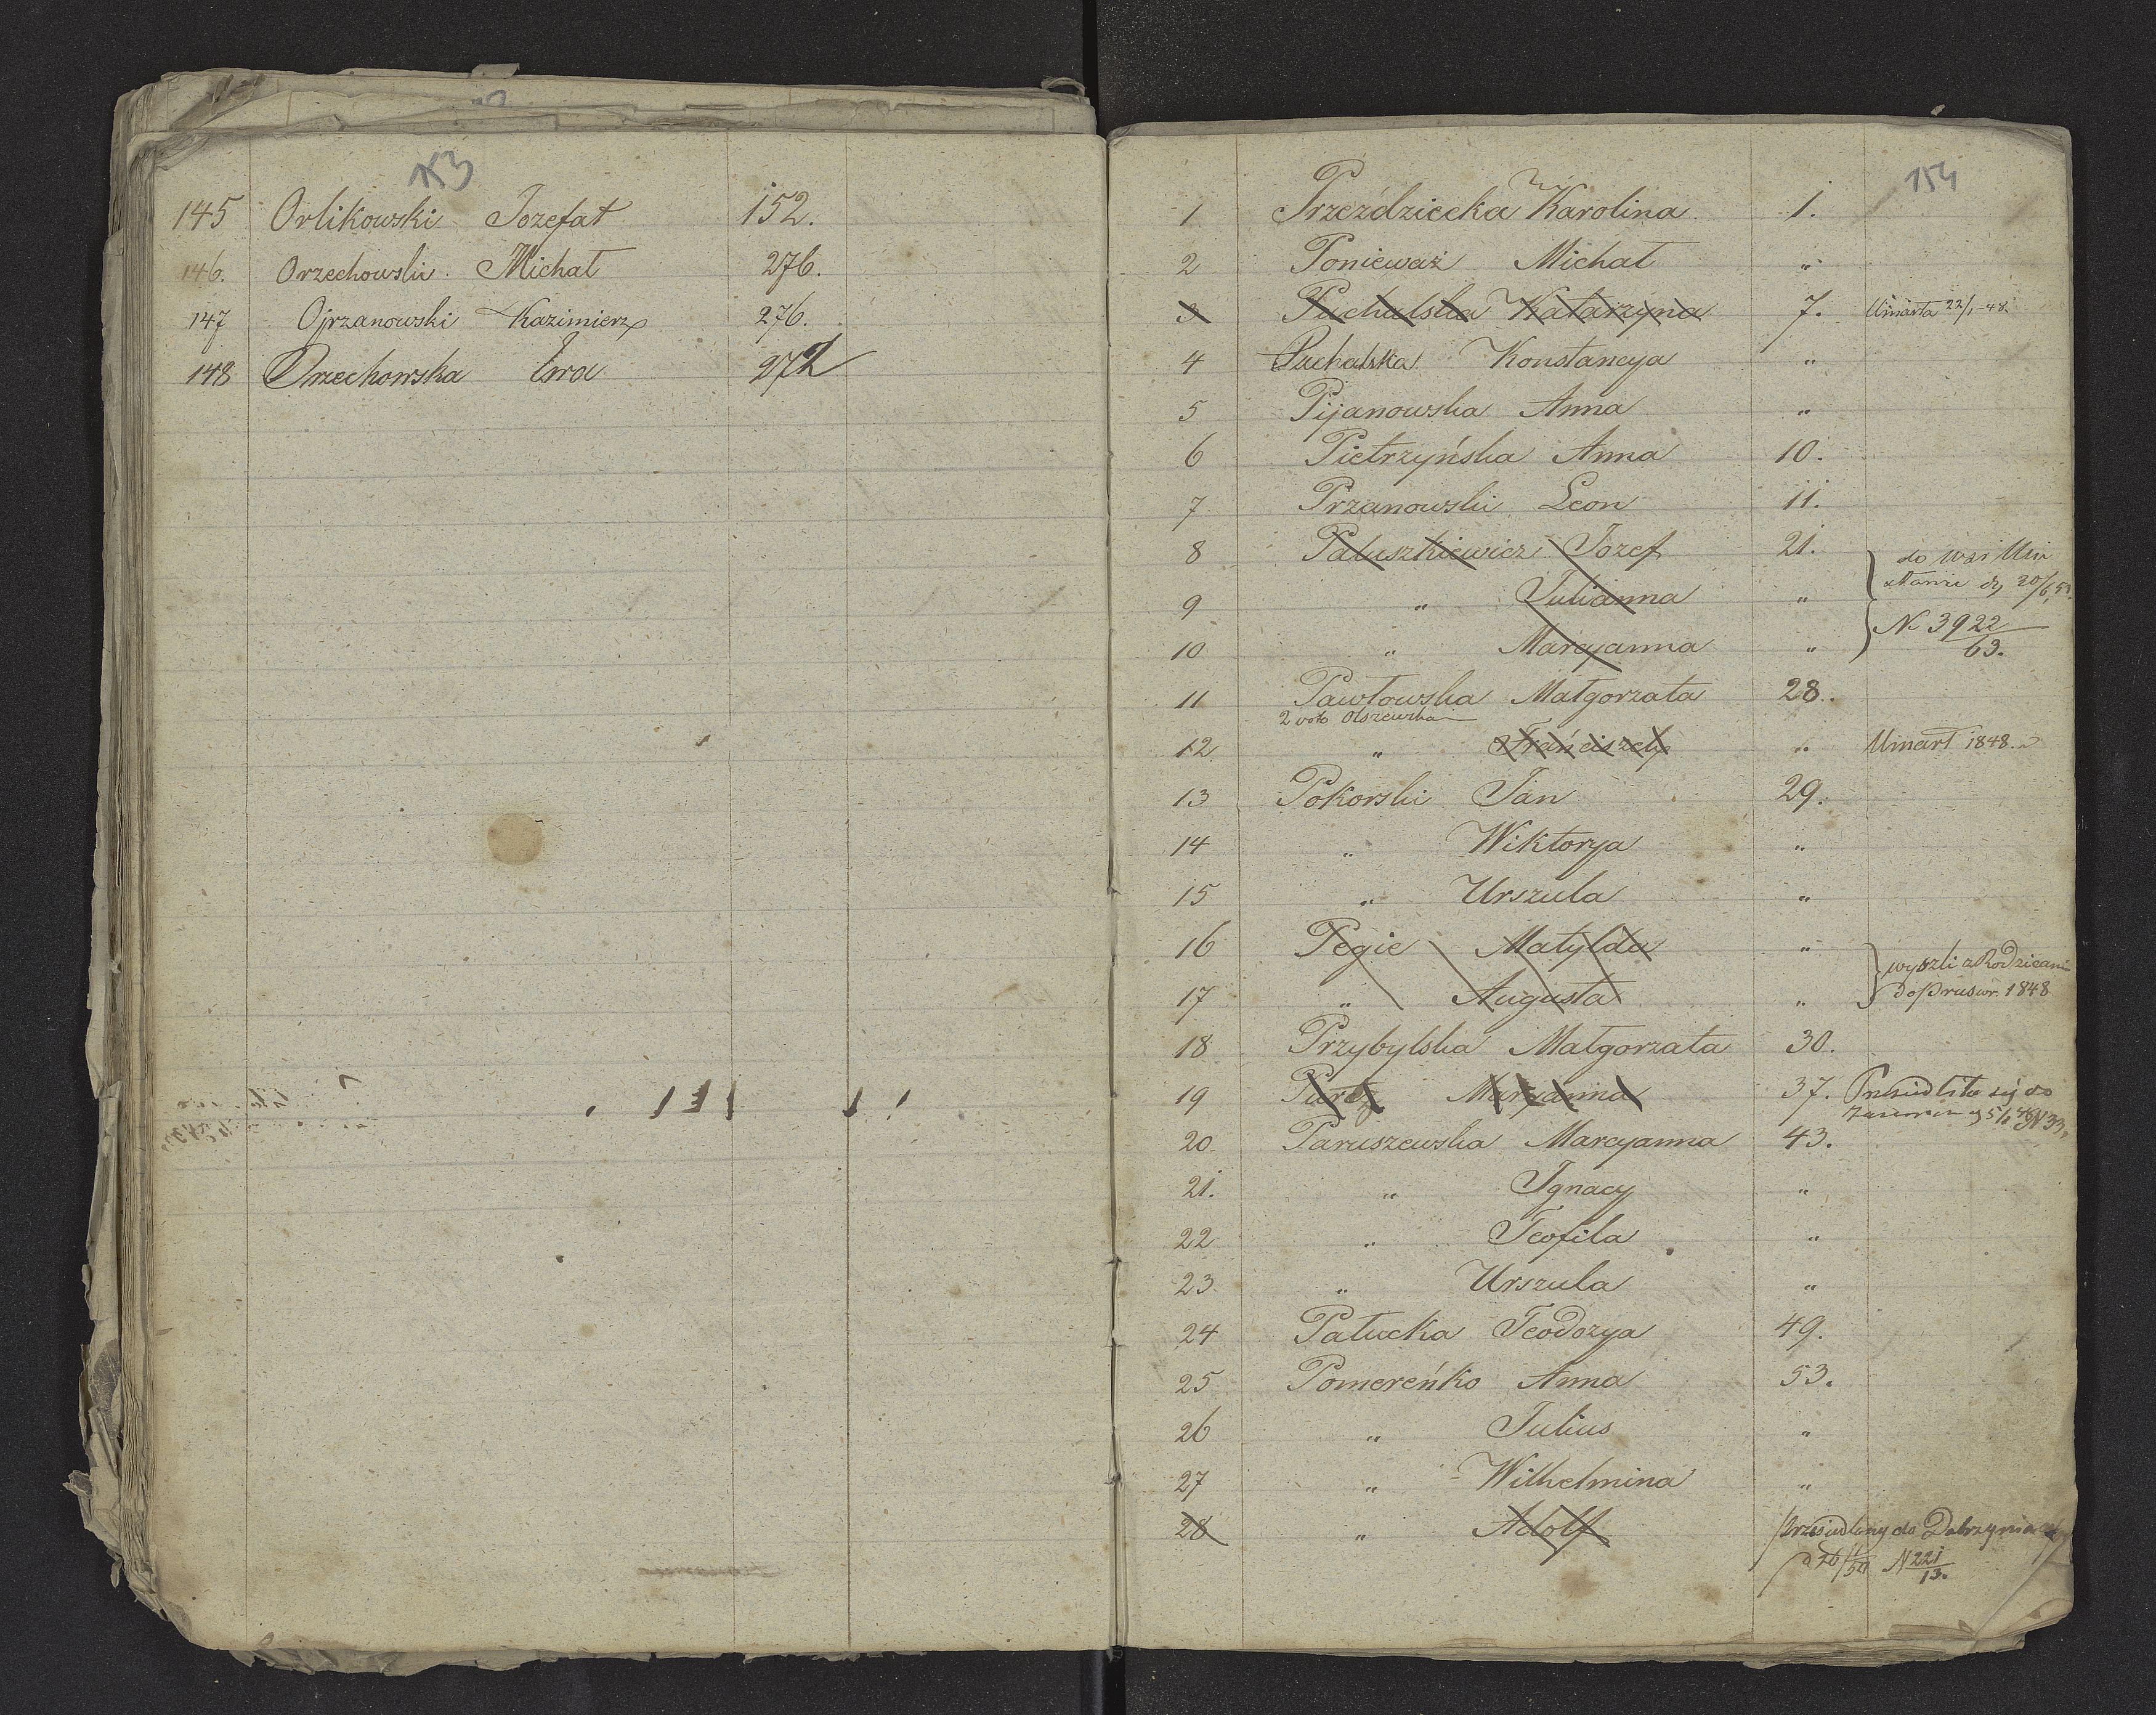 153
145 Orlikowski Jozefat 152.
146. Orzechowski Michał 276.
147 Ojrzanowski Kazimierz 276.
148 Orzechowska Ewa 272
154
1 Przeździecka Karolina 1.
2 Ponieważ Michał "
3 Puchalska Katarzyna 7. Umarła 22/1-48.
4 Puchalska Konstancya "
5 Pijanowska Anna "
6 Pietrzyńska Anna 10.
7 Przanowski Leon 11.
8 Paluszkiewicz Jozef 21. do wsi
9 " Julianna " 20/6
10 " Marcyanna " N 3922/63.
11 Pawłowska Małgorzata 28.
2 voto Olszewska
12 " Franciszek " Umarł 1848.
13 Pokorski Jan 29.
14 " Wiktorya "
15 " Urszula "
16 Pegie Matylda " wyszli z Rodzicami
17 " Augusta " do Prus w r. 1848
18 Przybylska Małgorzata 30.
19 Maryanna 37. do
20 Paruszewska Marcyanna 43.
21. " Ignacy "
22 " Teofila "
23 " Urszula "
24 Pałucka Teodozya 49.
25 Pomereńko Anna 53.
26 " Julius "
27 " Wilhelmina "
28 " Adolf przesiedlony do Dobrzynia
N 221/13.